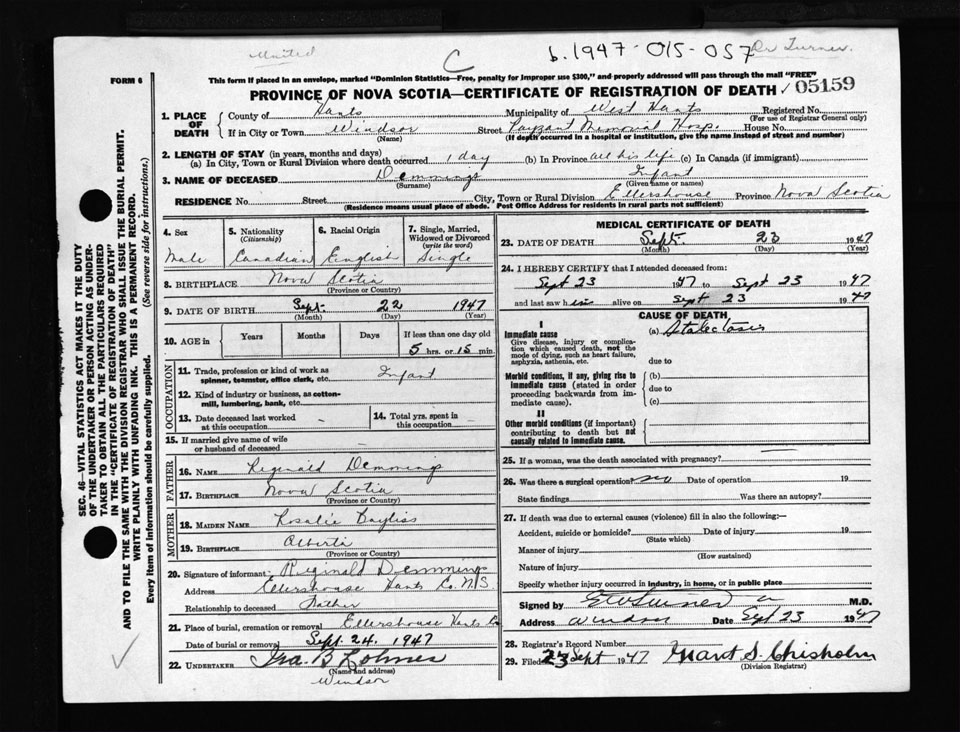 United C b. 1947-015-057 Dr Turner.
FORM 6
This form if placed in an envelope, marked "Dominion Statistics—Free, penalty for improper use $300," and properly addressed will pass through the mail "FREE"
PROVINCE OF NOVA SCOTIA—CERTIFICATE OF REGISTRATION OF DEATH ✓ 05159
1. PLACE OF DEATH
County of Hants Municipality of West Hants Registered No.
(For use of Registrar General only)
If in City or Town Windsor Street Payzant Memorial Hosp. House No.
(Name) (If death occurred in a hospital or institution, give the name instead of street and number)
2. LENGTH OF STAY (in years, months and days)
(a) In City, Town or Rural Division where death occurred 1 day (b) In Province all his life (c) In Canada (if immigrant)
3. NAME OF DECEASED Demmings Infant
(Surname) (Given name or names)
RESIDENCE No. Street City, Town or Rural Division Ellershouse Province Nova Scotia
(Residence means usual place of abode. Post Office Address for residents in rural parts not sufficient)
4. Sex
Male
5. Nationality
(Citizenship)
Canadian
6. Racial Origin
English
7. Single, Married, Widowed or Divorced
(write the word)
Single
8. BIRTHPLACE Nova Scotia
(Province or Country)
9. DATE OF BIRTH Sept. 22 1947
(Month) (Day) (Year)
10. AGE in Years Months Days If less than one day old
5 hrs. or 15 min.
OCCUPATION
11. Trade, profession or kind of work as
spinner, teamster, office clerk, etc. Infant
12. Kind of industry or business, as cotton-
mill, lumbering, bank, etc.
13. Date deceased last worked
at this occupation
14. Total yrs. spent in
this occupation
15. If married give name of wife
or husband of deceased
FATHER
16. NAME Reginald Demmings
17. BIRTHPLACE Nova Scotia
(Province or Country)
MOTHER
18. MAIDEN NAME Rosalie Bayliss
19. BIRTHPLACE Alberta
(Province or Country)
20. Signature of informant Reginald Demmings
Address Ellershouse Hants Co. N.S.
Relationship to deceased Father
21. Place of burial, cremation or removal Ellershouse Hants Co
Date of burial or removal Sept. 24. 1947
22. UNDERTAKER Ira. B Lohnes
(Name and address)
Windsor
MEDICAL CERTIFICATE OF DEATH
23. DATE OF DEATH Sept. 23 1947
(Month) (Day) (Year)
24. I HEREBY CERTIFY that I attended deceased from:
Sept 23 1947 to Sept 23 1947
and last saw him alive on Sept 23 1947
CAUSE OF DEATH
I
Immediate cause (a) Atalectasis
Give disease, injury or complica-
tion which caused death, not the
mode of dying, such as heart failure,
asphyxia, asthenia, etc. due to
Morbid conditions, if any, giving rise to (b)
immediate cause (stated in order due to
proceeding backwards from im-
mediate cause). (c)
II
Other morbid conditions (if important)
contributing to death but not
causally related to immediate cause.
25. If a woman, was the death associated with pregnancy?
26. Was there a surgical operation? no Date of operation 19
State findings Was there an autopsy?
27. If death was due to external causes (violence) fill in also the following:—
Accident, suicide or homicide? Date of injury 19
(State which)
Manner of injury
(How sustained)
Nature of injury
Specify whether injury occurred in industry, in home, or in public place
Signed by M.D.
Address Windsor Date Sept 23 1947
28. Registrar's Record Number
29. Filed 23 Sept 1947 Grant S. Chisholm
(Division Registrar)
SEC. 46—VITAL STATISTICS ACT MAKES IT THE DUTY
OF THE UNDERTAKER OR PERSON ACTING AS UNDER-
TAKER TO OBTAIN ALL THE PARTICULARS REQUIRED
IN THE "CERTIFICATE OF REGISTRATION OF DEATH"
AND TO FILE THE SAME WITH THE DIVISION REGISTRAR WHO SHALL ISSUE THE BURIAL PERMIT.
WRITE PLAINLY WITH UNFADING INK. THIS IS A PERMANENT RECORD.
Every item of information should be carefully supplied. (See reverse side for instructions.)